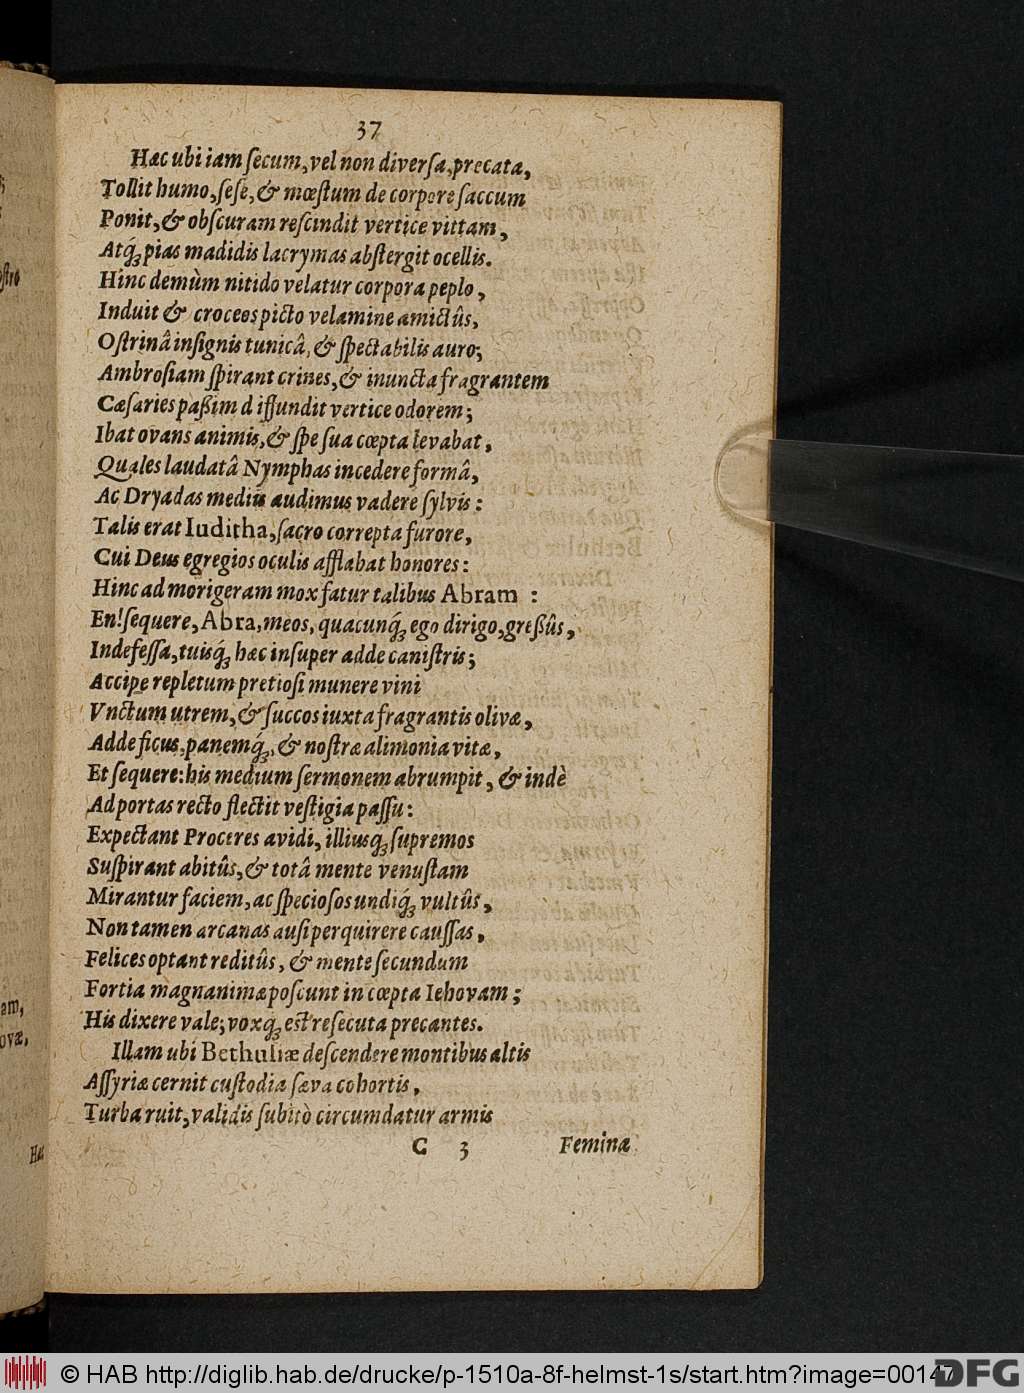 37
Hæc ubi iam secum, vel non diversa, precata,
Tollit humo, sese, & mœstum de corpore saccum
Ponit, & obscuram rescindit vertice vittam,
Atq́; pias madidis lacrymas abstergit ocellis.
Hinc demùm nitido velatur corpora peplo,
Induit & croceos picto velamine amictûs,
Ostrinâ insignis tunicâ, & spectabilis auro;
Ambrosiam spirant crines, & inuncta fragrantem
Cæsaries paßim diffundit vertice odorem;
Ibat ovans animis, & spe sua cœpta levabat,
Quales laudatâ Nymphas incedere formâ,
Ac Dryadas mediis audimus vadere sylvis:
Talis erat Iuditha, sacro correpta furore,
Cui Deus egregios oculis afflabat honores:
Hinc ad morigeram mox fatur talibus Abram :
En! sequere, Abra, meos, quacunq́; ego dirigo, greßûs,
Indefessa, tuisq́; hæc insuper adde canistris;
Accipe repletum pretiosi munere vini
Vnctum utrem, & succos iuxta fragrantis olivæ,
Adde ficus, panemq́;, & nostræ alimonia vitæ,
Et sequere: his medium sermonem abrumpit, & indè
Ad portas recto flectit vestigia passu:
Expectant Proceres avidi, illiusq́; supremos
Suspirant abitûs, & totâ mente venustam
Mirantur faciem, ac speciosos undiq́; vultûs,
Non tamen arcanas ausi perquirere caussas,
Felices optant reditûs, & mente secundum
Fortia magnanimæ poscunt in cœpta Iehovam;
His dixere vale; voxq́; est resecuta precantes.
Illam ubi Bethuliæ descendere montibus altis
Assyriæ cernit custodia sæva cohortis,
Turba ruit, validis subitò circumdatur armis
C 3 Feminæ
am,
ovæ,
Hæc
© HAB http://diglib.hab.de/drucke/p-1510a-8f-helmst-1s/start.htm?image=00147
DFG